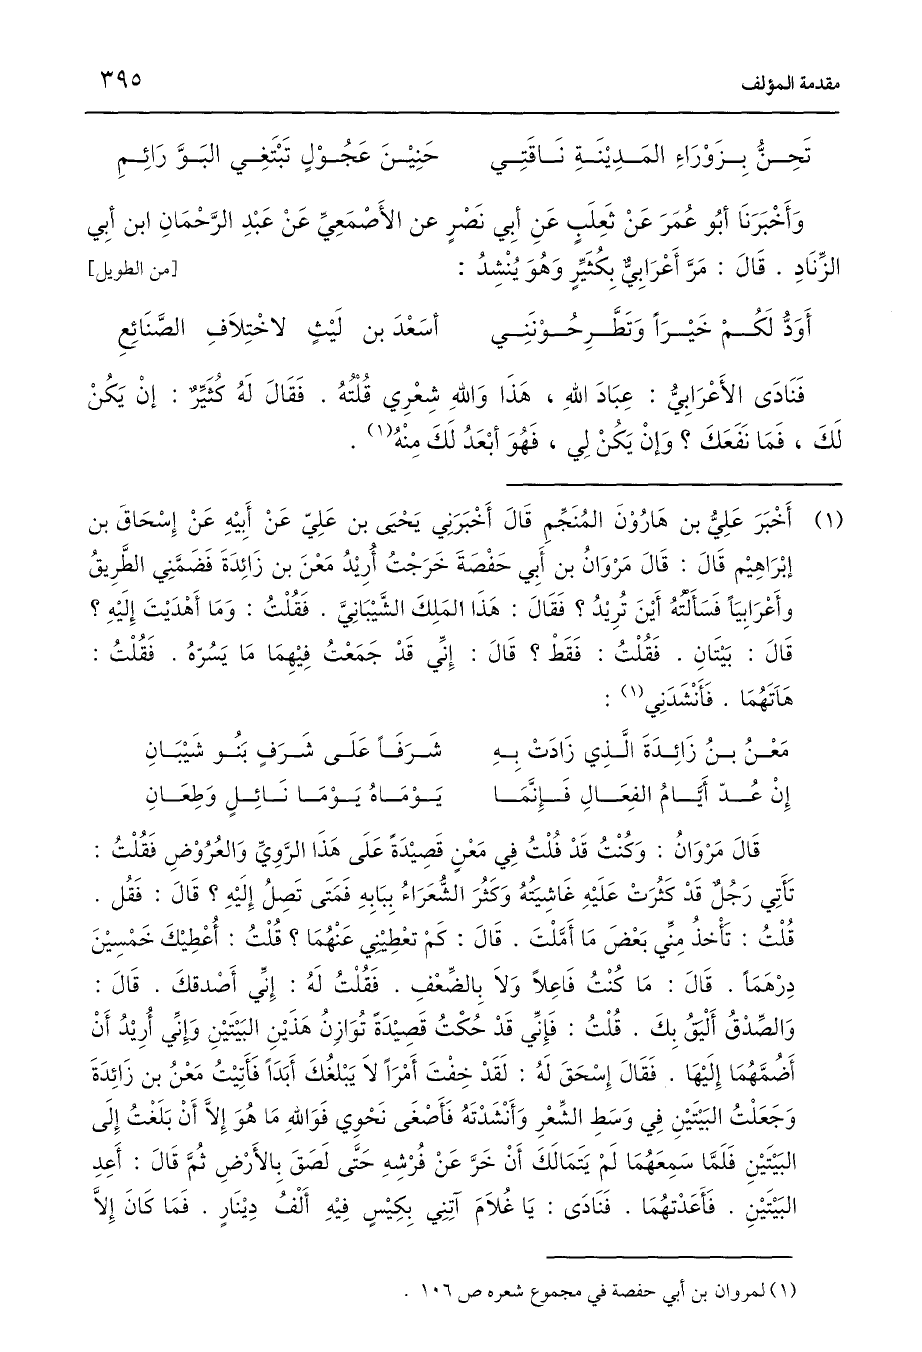 مقدمة المؤلف ٣٩٥
تَحِنُّ بِزَوْرَاءِ المَدِيْنَةِ نَاقَتِي حَنِيْنَ عَجُوْلٍ تَبْتَغِي البَوَّ رَائِمِ
وَأَخْبَرَنَا أَبُو عُمَرَ عَنْ ثَعلَبٍ عَنِ أَبي نَصْرٍ عن الأَصْمَعِيِّ عَنْ عَبْدِ الرَّحْمَانِ ابن أبي
الزِّنَادِ . قَالَ : مَرَّ أَعْرَابِيٌّ بِكُثَيِّرٍ وَهُوَ يُنْشِدُ : [من الطويل]
أَوَدُّ لَكُمْ خَيْرَاً وَتَطَّرِحُوْنَنِي أسَعْدَ بن لَيْثٍ لاخْتِلاَفِ الصَّنَائِعِ
فَنَادَى الأَعْرَابِيُّ : عِبَادَ اللهِ ، هَذَا وَاللهِ شِعْرِي قُلْتُهُ . فَقَالَ لَهُ كُثَيِّرٌ : إنْ يَكُنْ
لَكَ ، فَمَا نَفَعَكَ ؟ وَإنْ يَكُنْ لِي ، فَهُوَ أبْعَدُ لَكَ مِنْهُ(١) .
(١) أَخْبَرَ عَلِيُّ بن هَارُوْنَ المُنَجِّمِ قَالَ أَخْبَرَنِي يَحْيَى بن عَلِيّ عَنْ أَبِيْهِ عَنْ إسْحَاقَ بن
إبْرَاهِيْم قَالَ : قَالَ مَرْوَانُ بن أَبي حَفْصَةَ خَرَجْتُ أُرِيْدُ مَعْنَ بن زَائِدَةَ فَضَمَّنِي الطَّرِيقُ
وأَعْرَابِيَاً فَسَأَلْتُهُ أَيْنَ تُرِيْدُ ؟ فَقَالَ : هَذَا المَلِكَ الشَّيْبَانِيَّ . فَقُلْتُ : وَمَا أَهْدَيْتَ إِلَيْهِ ؟
قَالَ : بَيْتَانِ . فَقُلْتُ : فَقَطْ ؟ قَالَ : إِنِّي قَدْ جَمَعْتُ فِيْهِمَا مَا يَسُرّهُ . فَقُلْتُ :
هَاتَهُمَا . فَأَنْشَدَنِي(١) :
مَعْنُ بنُ زَائِدَةَ الَّذِي زَادَتْ بِهِ شَرَفَاً عَلَى شَرَفٍ بَنُو شَيْبَانِ
إنْ عُدّ أَيَّامُ الفِعَالِ فَإِنَّمَا يَوْمَاهُ يَوْمَا نَائِلٍ وَطِعَانِ
قَالَ مَرْوَانُ : وَكُنْتُ قَدْ قُلْتُ فِي مَعْنٍ قَصِيْدَةً عَلَى هَذَا الرَّوِيِّ وَالعُرُوْضِ فَقُلْتُ :
تَأْتِي رَجُلٌ قَدْ كَثُرَتْ عَلَيْهِ غَاشِيَتُهُ وَكَثُرَ الشُّعَرَاءُ بِبَابِهِ فَمَتَى تَصلُ إِلَيْهِ ؟ قَالَ : فَقُل .
قُلْتُ : تَأْخذُ مِنِّي بَعْضَ مَا أَمَّلْتَ . قَالَ : كَمْ تعْطِيْنِي عَنْهُمَا ؟ قُلْتُ : أُعْطِيكَ خَمْسِيْنَ
دِرْهَمَاً . قَالَ : مَا كُنْتُ فَاعِلاً وَلاَ بِالضِّعْفِ . فَقُلْتُ لَهُ : إِنِّي أَصْدقكَ . قَالَ :
وَالصِّدْقُ أَلْيَقُ بِكَ . قُلْتُ : فَإِنِّي قَدْ حُكْتُ قَصِيْدَةً تُوَازِنُ هَذَيْنِ البَيْتَيْنِ وَإِنِّي أُرِيْدُ أَنْ
أَضُمَّهُمَا إِلَيْهَا . فَقَالَ إِسْحَقَ لَهُ : لَقَدْ خِفْتَ أَمْرَاً لاَ يَبْلغُكَ أَبَدَاً فَأَتِيْتُ مَعْنُ بن زَائِدَةَ
وَجَعَلْتُ البَيْتَيْنِ فِي وَسَطِ الشِّعْرِ وَأَنْشَدْتَهُ فَأَصْغَى نَحْوِي فَوَاللهِ مَا هُوَ إِلاَّ أَنْ بَلَغْتُ إِلَى
البَيْتَيْنِ فَلَمَّا سَمِعَهُمَا لَمْ يَتَمَالَكَ أَنْ خَرَّ عَنْ فُرْشِهِ حَتَّى لَصَقَ بِالأَرْضِ ثُمَّ قَالَ : أَعِدِ
البَيْتَيْنِ . فَأَعَدْتهُمَا . فَنَادَى : يَا غُلاَمَ آتِنِي بِكِيْسٍ فِيْهِ أَلْفُ دِيْنَارٍ . فَمَا كَانَ إِلاَّ
(١) لمروان بن أبي حفصة في مجموع شعره ص ١٠٦ .